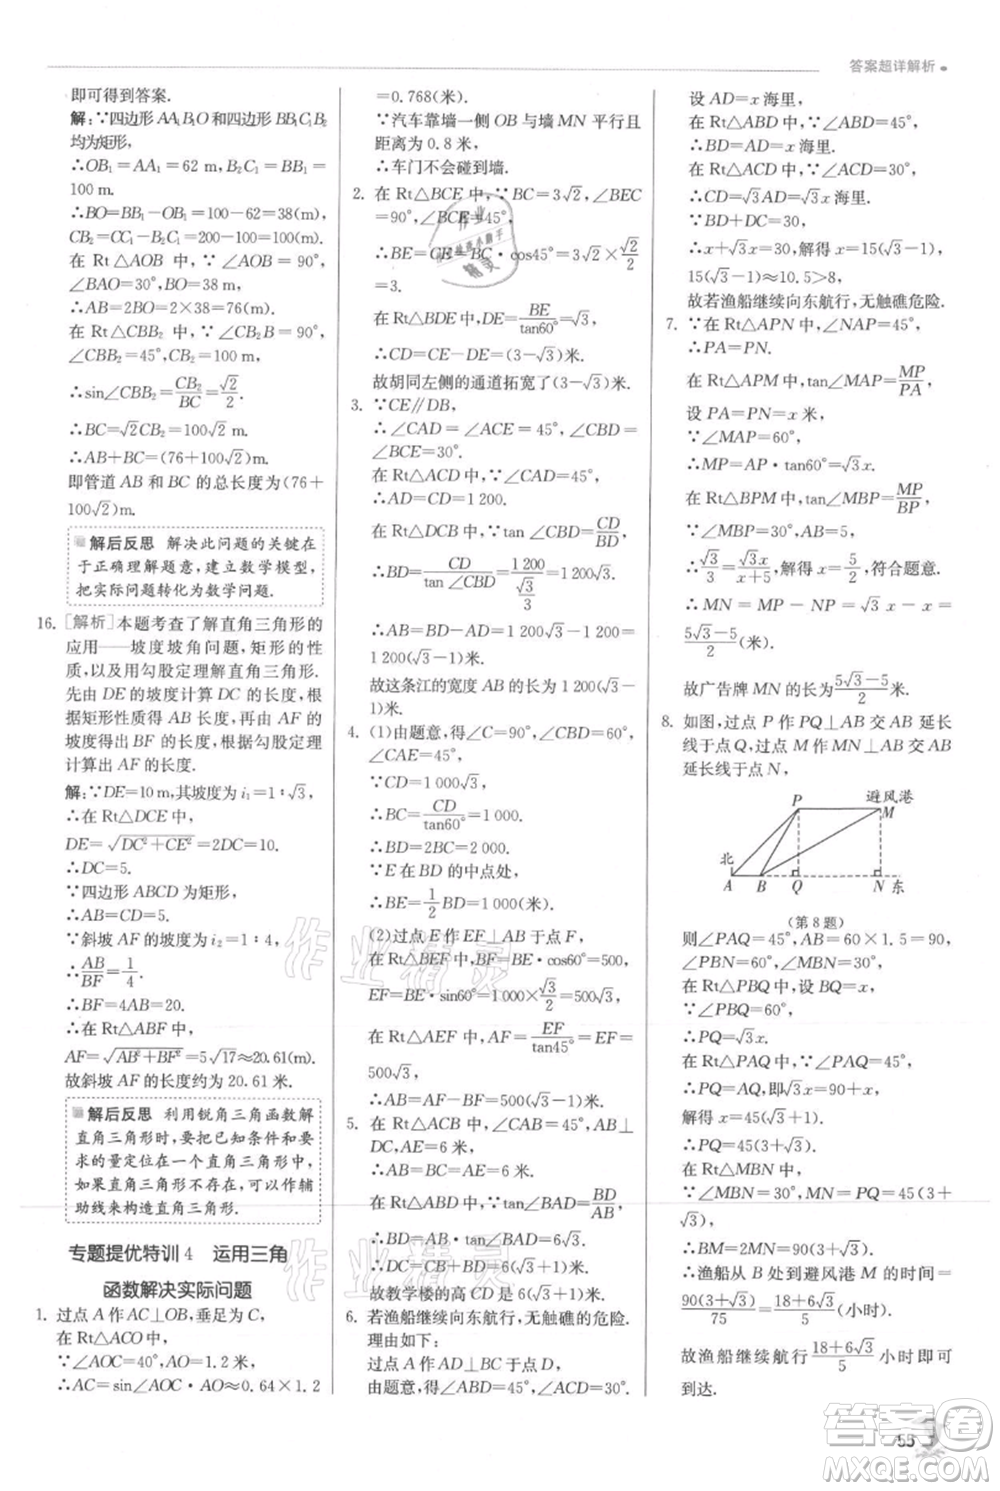 答案超详解析
即可得到答案.
解:∵四边形AA₁B₁O和四边形BB₁C₁B₂
均为矩形,
∴OB₁=AA₁=62 m,B₂C₁=BB₁=
100 m.
∴BO=BB₁-OB₁=100-62=38(m),
CB₂=CC₁-B₂C₁=200-100=100(m).
在 Rt△AOB 中,∵∠AOB=90°,
∠BAO=30°,BO=38 m,
∴AB=2BO=2×38=76(m).
在 Rt△CBB₂ 中,∵∠CB₂B=90°,
∠CBB₂=45°,CB₂=100 m,
∴sin∠CBB₂=CB₂/BC=√2/2.
∴BC=√2CB₂=100√2(m).
∴AB+BC=(76+100√2)m.
即管道 AB 和 BC 的总长度为(76+
100√2)m.
解后反思 解决此问题的关键在
于正确理解题意,建立数学模型,
把实际问题转化为数学问题.
16. [解析]本题考查了解直角三角形的
应用——坡度坡角问题,矩形的性
质,以及用勾股定理解直角三角形.
先由 DE 的坡度计算 DC 的长度,根
据矩形性质得 AB 长度,再由 AF 的
坡度得出 BF 的长度,根据勾股定理
计算出 AF 的长度.
解:∵DE=10 m,其坡度为 i₁=1∶√3,
∴在 Rt△DCE 中,
DE=√(DC²+CE²)=2DC=10.
∴DC=5.
∵四边形 ABCD 为矩形,
∴AB=CD=5.
∵斜坡 AF 的坡度为 i₂=1∶4,
∴AB/BF=1/4.
∴BF=4AB=20.
∴在 Rt△ABF 中,
AF=√(AB²+BF²)=5√17≈20.61(m).
故斜坡 AF 的长度约为 20.61 米.
解后反思 利用锐角三角函数解
直角三角形时,要把已知条件和要
求的量定位在一个直角三角形中,
如果直角三角形不存在,可以作辅
助线来构造直角三角形.
专题提优特训 4 运用三角
函数解决实际问题
1. 过点 A 作 AC⊥OB,垂足为 C,
在 Rt△ACO 中,
∵∠AOC=40°,AO=1.2 米,
∴AC=sin∠AOC·AO≈0.64×1.2
=0.768(米).
∵汽车靠墙一侧 OB 与墙 MN 平行且
距离为 0.8 米,
∴车门不会碰到墙.
2. 在 Rt△BCE 中,∵BC=3√2,∠BEC
=90°,∠BCE=45°,
∴BE=CE=BC·cos45°=3√2×√2/2
=3.
在 Rt△BDE 中,DE=BE/tan60°=√3,
∴CD=CE-DE=(3-√3)米.
故胡同左侧的通道拓宽了(3-√3)米.
3. ∵CE∥DB,
∴∠CAD=∠ACE=45°,∠CBD=
∠BCE=30°.
在 Rt△ACD 中,∵∠CAD=45°,
∴AD=CD=1 200.
在 Rt△DCB 中,∵tan ∠CBD=CD/BD,
∴BD=CD/tan ∠CBD=1 200/(√3/3)=1 200√3.
∴AB=BD-AD=1 200√3-1 200=
1 200(√3-1)米.
故这条江的宽度 AB 的长 1 200(√3-
1)米.
4. (1)由题意,∠C=90°,∠CBD=60°,
∠CAE=45°,
∵CD=1 000√3,
∴BC=CD/tan60°=1 000.
∴BD=2BC=2 000.
∵E 在 BD 的中点处,
∴BE=1/2BD=1 000(米).
(2)过点 E 作 EF⊥AB 于点 F,
在 Rt△BEF 中,BF=BE·cos60°=500,
EF=BE·sin60°=1 000×√3/2=500√3,
在 Rt△AEF 中,AF=EF/tan45°=
500√3,
∴AB=AF-BF=500(√3-1)米.
5. 在 Rt△ACB 中,∠CAB=45°,AB⊥
DC,AE=6 米,
∴AB=BC=AE=6 米.
在 Rt△ABD 中,∵tan∠BAD=BD/AB,
∴BD=AB·tan∠BAD=6√3.
∴DC=CB+BD=6+6√3.
故教学楼的高 CD 是(6+6√3)米.
6. 若渔船继续向东航行,无触礁的危险.
理由如下:
过点 A 作 AD⊥BC 于点 D,
由题意,∠ABD=45°,∠ACD=30°.
设 AD=x 海里,
在 Rt△ABD 中,∵∠ABD=45°,
∴BD=AD=x 海里.
在 Rt△ACD 中,∵∠ACD=30°,
∴CD=√3AD=√3x 海里.
∵BD+DC=30,
∴x+√3x=30,解得 x=15(√3-1).
15(√3-1)≈10.5>8,
故若渔船继续向东航行,无触礁危险.
7. ∵在 Rt△APN 中,∠NAP=45°,
∴PA=PN.
在 Rt△APM 中,tan∠MAP=MP/PA,
设 PA=PN=x 米,
∵∠MAP=60°,
∴MP=AP·tan60°=√3x(米).
在 Rt△BPM 中,tan∠MBP=MP/BP,
∵∠MBP=30°,AB=5,
∴√3/3=√3x/(x+5),解得 x=5/2,符合题意.
∴MN=MP-NP=√3x-x=
(5√3-5)/2(米).
故广告牌 MN 的长为(5√3-5)/2米.
8. 如图,过点 P 作 PQ⊥AB 交 AB 延长
线于点 Q,过点 M 作 MN⊥AB 交 AB
延长线于点 N,
P 避风港
M
北
A B Q N 东
(第 8 题)
则∠PAQ=45°,AB=60×1.5=90,
∠PBN=60°,∠MBN=30°,
在 Rt△PBQ 中,设 BQ=x,
∵∠PBQ=60°,
∴PQ=√3x.
在 Rt△PAQ 中,∵∠PAQ=45°,
∴PQ=AQ,即√3x=90+x,
解得 x=45(√3+1).
∴PQ=45(3+√3).
在 Rt△MNB 中,
∵∠MBN=30°,MN=PQ=45(3+
√3),
∴BM=2MN=90(3+√3).
∴渔船从 B 处到避风港 M 的时间为
90(3+√3)/75=(18+6√3)/5(小时).
故渔船继续航行(18+6√3)/5小时即可
到达.
55
作业精灵
作业精灵
答案圈
MXQE.COM